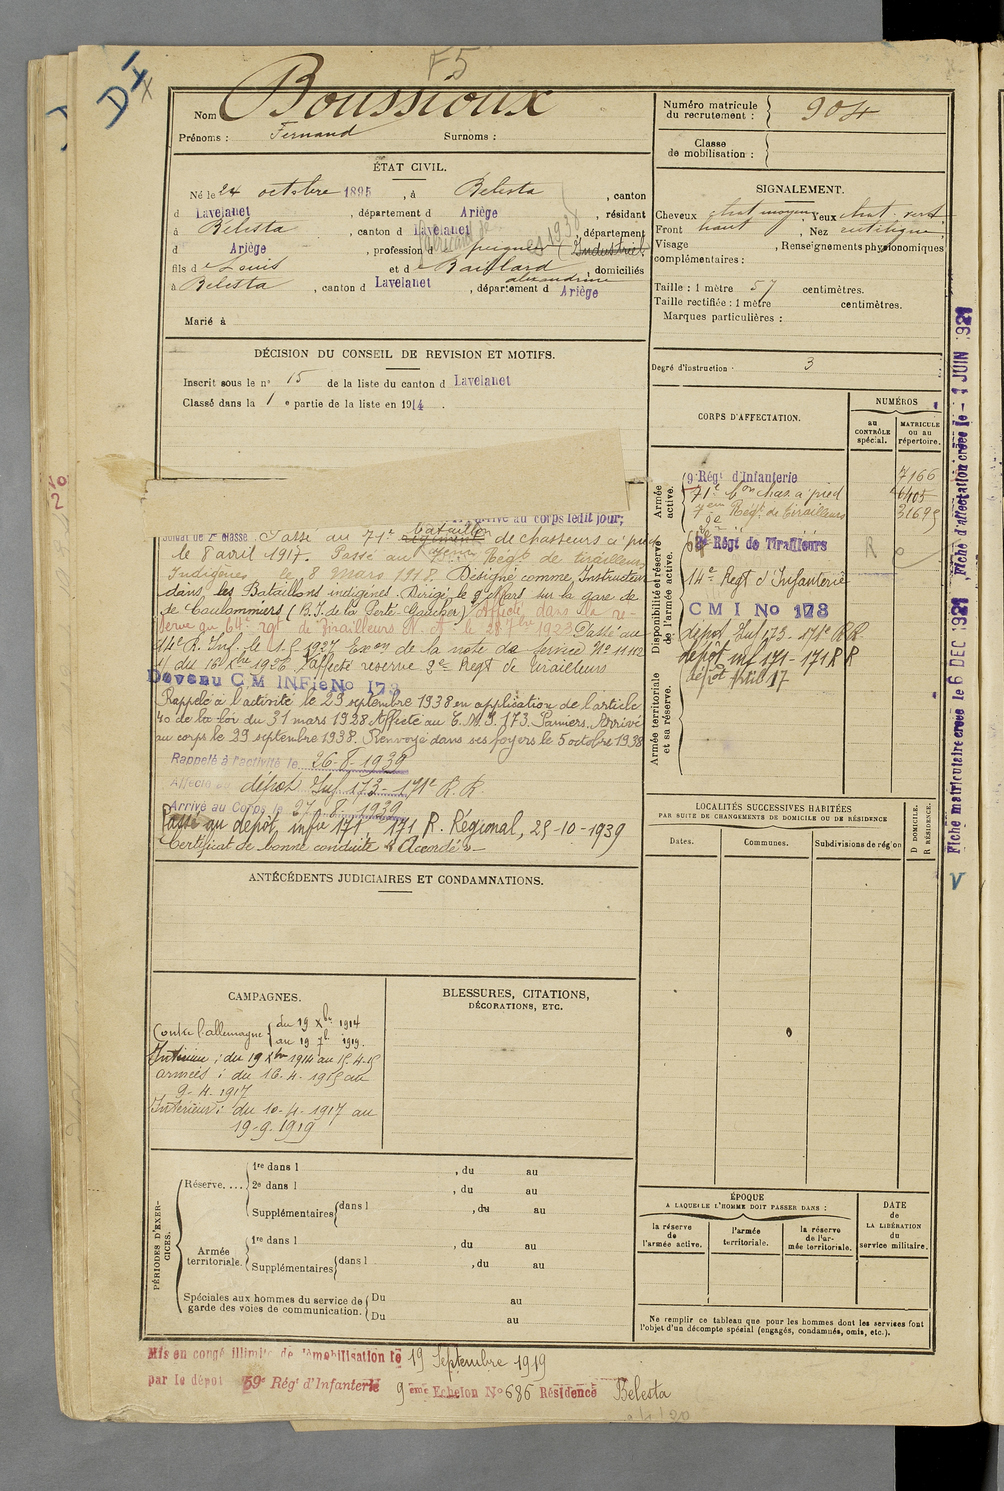 F5
DI
X
Nom Boussioux
Prénoms : Fernand Surnoms :
Numéro matricule du recrutement : 904
Classe de mobilisation :
ÉTAT CIVIL.
Né le 24 octobre 1895, à Bélesta, canton
d Lavelanet, département d Ariège, résidant
à Bélesta, canton d Lavelanet, département
d Ariège, profession d peigneur (Industriel
fils de Louis et de Baillard alexandrine, domiciliés
à Bélesta, canton d Lavelanet, département d Ariège
Marié à
SIGNALEMENT.
Cheveux chat moyen, Yeux chat. vert
Front haut, Nez rectiligne
Visage , Renseignements physionomiques
complémentaires :
Taille : 1 mètre 57 centimètres.
Taille rectifiée : 1 mètre centimètres.
Marques particulières :
Degré d'instruction . 3
DÉCISION DU CONSEIL DE REVISION ET MOTIFS.
Inscrit sous le n° 15 de la liste du canton d Lavelanet
Classé dans la 1 e partie de la liste en 1914.
arrivé au corps ledit jour;
Soldat de 2e classe. Passé au 71e régiment bataillon de chasseurs à pied
le 8 avril 1917. Passé au 7ème Régt de tirailleurs
Indigènes le 8 mars 1918. Désigné comme Instructeur
dans les Bataillons indigènes. Dirigé le 9 Mars sur la gare de
de Coulommiers (B.I. de la Ferté Gaucher) Affecté dans la ré-
serve au 64e rgt de Tirailleurs N. A. le 28 7bre 1923 Passé au
14e R. Inf. le 1.5 1927 Exon de la note de service No 11112
1/ du 16 Xbre 1926 Affecté réserve 9e Regt de Tirailleurs
Devenu C M INFie No 173
Rappelé à l'activité le 29 septembre 1938 en application de l'article
40 de la loi du 31 mars 1928. Affecté au C.M.I. 173. Pamiers. Arrivé
au corps le 29 septembre 1938. Renvoyé dans ses foyers le 5 octobre 1938
Rappelé à l'activité le 26-8-1939
Affecté au dépôt Inf 173-171e R.R.
Arrivé au Corps le 27-8-1939
Passé au dépôt, infie 171, 171 R. Régional, 25-10-1939
Certificat de bonne conduite "Accordé"
CORPS D'AFFECTATION.
NUMÉROS
au CONTRÔLE spécial.
MATRICULE ou au répertoire.
Armée active.
9e Régt d'Infanterie 7166
71e Bon chas. à pied 6405
7em Regt de tirailleurs 31675
Disponibilité et réserve de l'armée active.
Régt de Tirailleurs R
14e Regt d'Infanterie
C M I No 173
dépôt Inf 173-171e R.R.
dépôt inf 171-171 R R
dépôt Artil 17
Armée territoriale et sa réserve.
LOCALITÉS SUCCESSIVES HABITÉES
PAR SUITE DE CHANGEMENTS DE DOMICILE OU DE RÉSIDENCE
Dates. Communes. Subdivisions de région
D DOMICILE.
R RÉSIDENCE.
Fiche matriculaire créée le 6 DEC 1921, Fiche d'affectation créée le - 1 JUIN 1921
V
ANTÉCÉDENTS JUDICIAIRES ET CONDAMNATIONS.
CAMPAGNES.
Contre l'allemagne { du 19 Xbre 1914
au 19 7bre 1919.
Intérieur : du 19 Xbre 1914 au 15-4-15
armées : du 16-4-1915 au
9-4-1917
Intérieur : du 10-4-1917 au
19-9-1919
BLESSURES, CITATIONS,
DÉCORATIONS, ETC.
PÉRIODES D'EXERCICES.
Réserve.... 1re dans l , du au
2e dans l , du au
Supplémentaires dans l , du au
Armée territoriale. 1re dans l , du au
Supplémentaires dans l , du au
Spéciales aux hommes du service de garde des voies de communication. Du au
Du au
ÉPOQUE
A LAQUELLE L'HOMME DOIT PASSER DANS :
la réserve de l'armée active.
l'armée territoriale.
la réserve de l'armée territoriale.
DATE de LA LIBÉRATION du service militaire.
Ne remplir ce tableau que pour les hommes dont les services font
l'objet d'un décompte spécial (engagés, condamnés, omis, etc.).
Mis en congé illimité de démobilisation le 19 Septembre 1919
par le dépôt 59e Régt d'Infanterie 9ème Echelon No 686 Résidence Bélesta